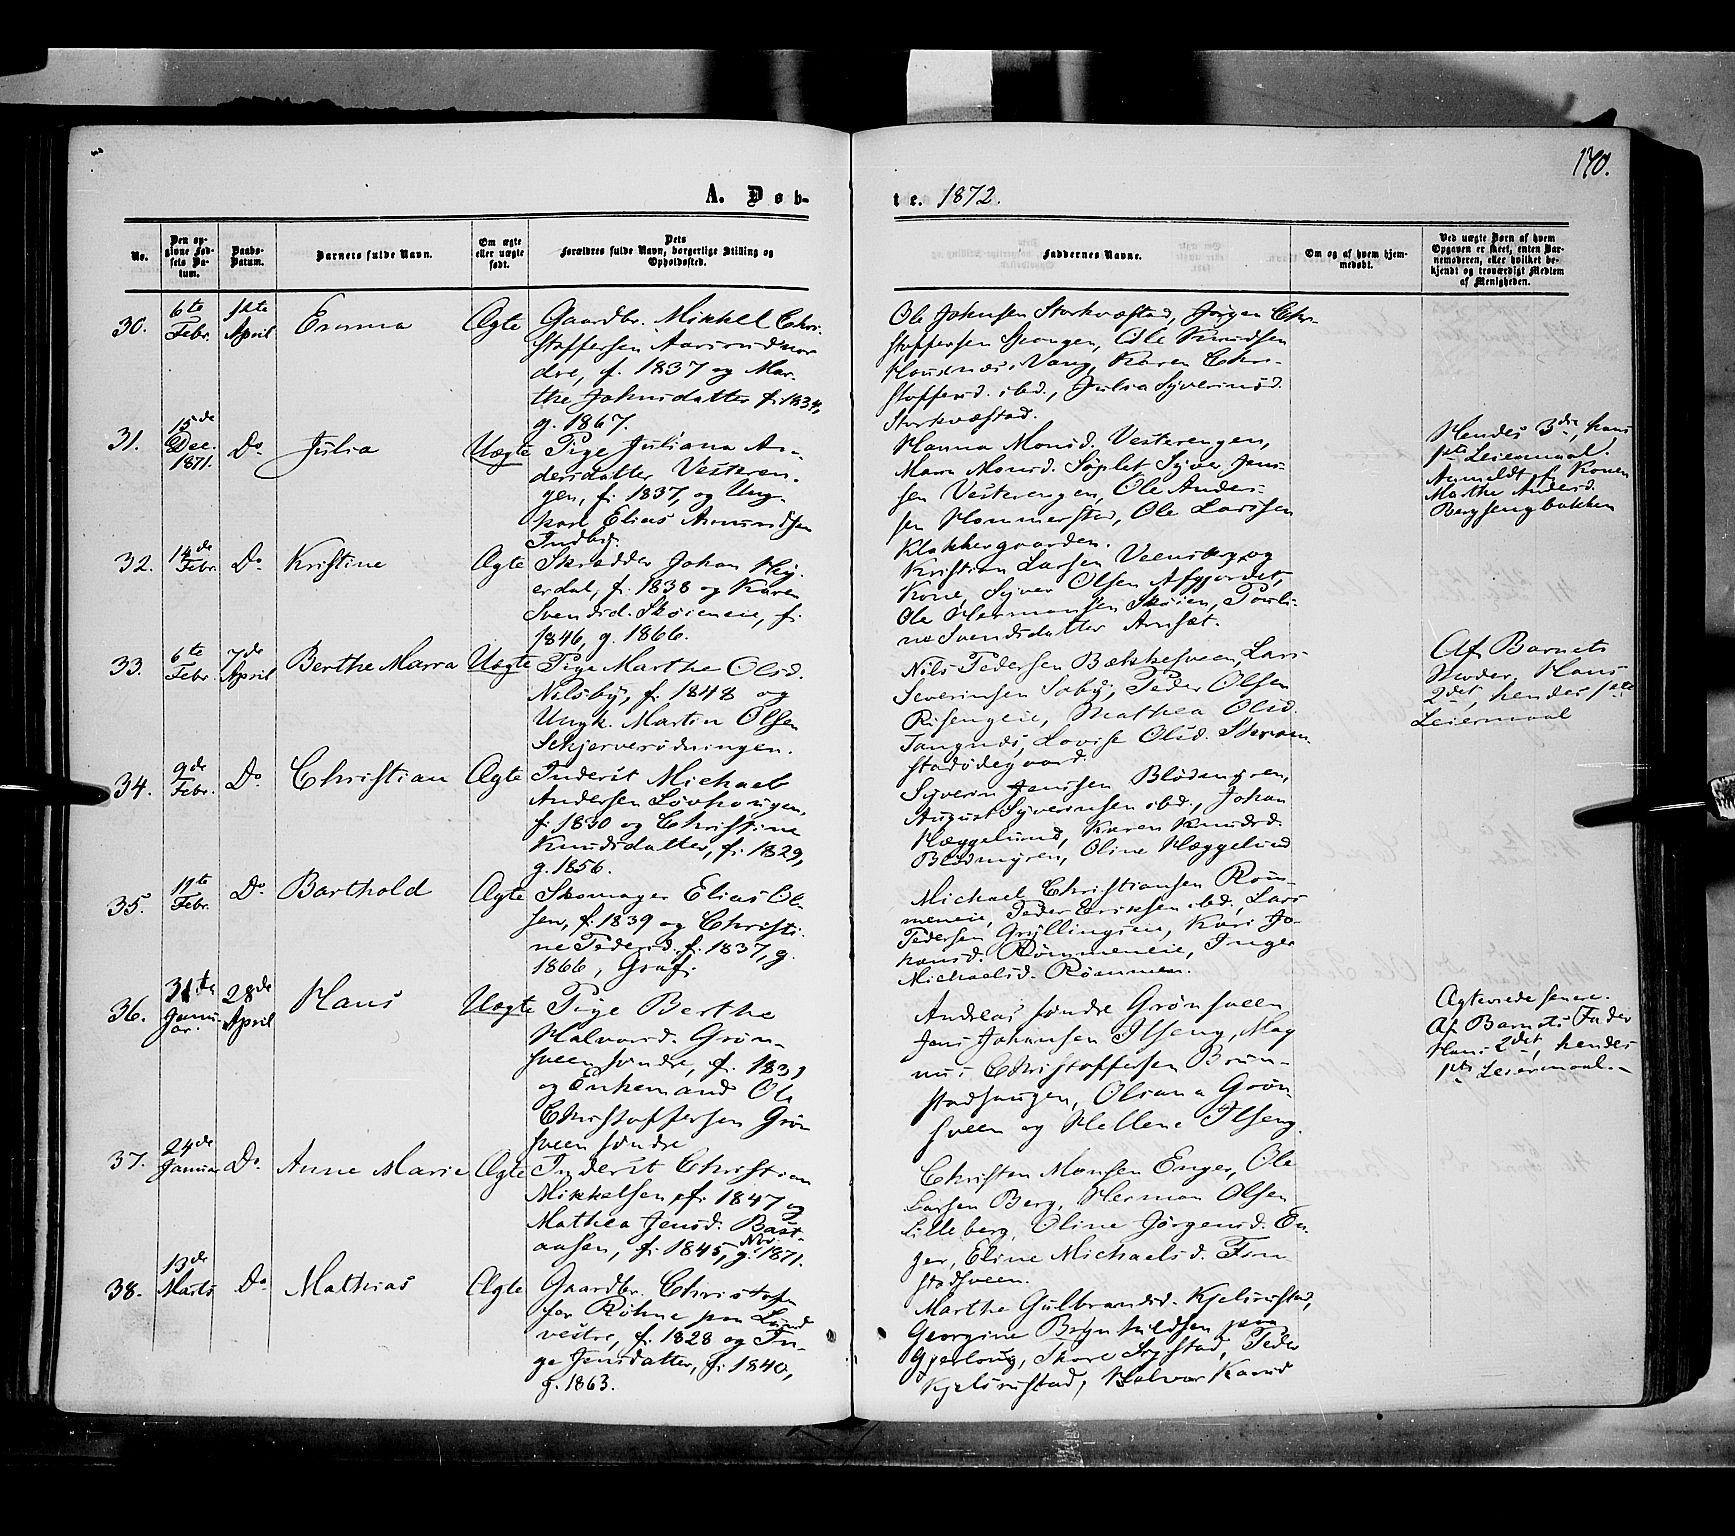 170.
A. Døb-
te. 1872.
No.
Den opgivne Fødsels Datum.
Daabs-Datum.
Barnets fulde Navn.
Om ægte eller uægte født.
Dets Forældres fulde Navn, borgerlige Stilling og Opholdssted.
Faddernes Navne.
Om og af hvem hjemmedøbt.
Ved uægte Børn af hvem Opgaven er skeet, enten Barnemoderen, eller hvilket bekjendt og troværdigt Medlem af Menigheden.
30.
6te Febr.
1ste April
Emma
Ægte
Gaardbr. Mikkel Chri-
stoffersen Aarsrud nor-
dre, f. 1837 og Mar-
the Johnsdatter f. 1834,
g. 1867.
Ole Johnsen Storkvæstad, Jørgen Chr-
stoffersen Spangen, Ole Knudsen
i Vang, Karen Chri-
stoffersd. ibd., Julia Syverinsd.
Storkvæstad.
31.
15de Dec. 1871.
Do
Julia
Uægte
Pige Juliana An-
dersdatter Vesteren-
gen, f. 1837, og Ung-
karl Elias Amundsen
Indby.
Hanna Monsd. Vesterengen,
Maren Monsd. Søplet, Syver Jen-
sen Vesterengen, Ole Ander-
sen Hommerstad, Ole Larsen
Klokkergaarden.
Hendes 3die, hans
1ste Leiermaal.
Anmeldt af Konen
Mathe Andersd.
Bergsengbakken
32.
14de Febr.
Do
Kristine
Ægte
Skrædder Johan Hey-
erdal, f. 1838 og Karen
Svendsd. Skøieneie, f.
1846, g. 1866.
Kristian Larsen Veensberg og
Kone, Syver Olsen Afgjordet,
Ole Hermansen Skøien, Pauli-
ne Svendsdatter Arnsæt.
33.
6te Febr.
7de April
Berthe Marra
Uægte
Pige Marthe Olsd.
Nilsby, f. 1848 og
Ungk. Martin Olsen
Skjerverødningen.
Nils Pedersen Bækkesveen, Lars
Severinsen Saby, Peder Olsen
Risengeie, Mathea Olsd.
Tangnæs, Lovise Olsd. Skram-
stadødegaard.
Af Barnets
Moder. Hans
2det, hendes 1ste
Leiermaal
34.
9de Febr.
Do
Christian
Ægte
Inderst Michael
Andersen Løvhougen,
f. 1830 og Christine
Knudsdatter, f. 1829,
g. 1856.
Syverin Jensen Blødmyren,
August Syverinsen ibd., Johan
Hæggelund, Karen Knudsd.
Blødmyren, Oline Hæggelund
35.
19te Febr.
Do
Barthold
Ægte
Skomager Elias Ol-
sen, f. 1839 og Christi-
ne Pedersd. f. 1837, g.
1866, Graf.
Michael Christiansen Røm-
meneie, Peder Eriksen ibd., Lars
Pedersen Gryllingseie, Kari Jo-
hansd. Rømmeneie, Inger
Michaelsd. Rømmen.
36.
31te Januar.
28de April
Hans
Uægte
Pige Berthe
Halvorsd. Grøn-
sveen søndre, f. 1839
og Enkemand Ole
Christoffersen Grøn-
sveen søndre
Andreas søndre Grønsveen
Jens Johansen Ilseng, Mag-
nus Christoffersen Brun-
stadhaugen, Olsana Grøn-
sveen og Hellene Ilseng.
Ægteviede senere.
Af Barnets Fader
Hans 2det, hendes
1ste Leiermaal.
37.
24de Januar
Do.
Anne Marie
Ægte
Inderst Christian
Mikkelsen, f. 1847 og
Mathea Jensd. Bast-
aasen, f. 1845, g. Nov. 1871.
Christen Monsen Enger, Ole
Larsen Berg, Herman Olsen
Lilleberg, Oline Jørgensd. En-
ger, Eline Michaelsd. Fin-
stadsveen.
38.
13de Marts
Do
Mathias
Ægte
Gaardbr. Christof-
fer Røhne paa Lund
vestre, f. 1828 og In-
ge Jensdatter, f. 1840,
g. 1863.
Marthe Gulbrandsd. Kjelsrustad,
Georgine Brynhildsen paa
Gjerlaug, Thore Systad, Peder
Kjelsrustad, Halvor Kaurud